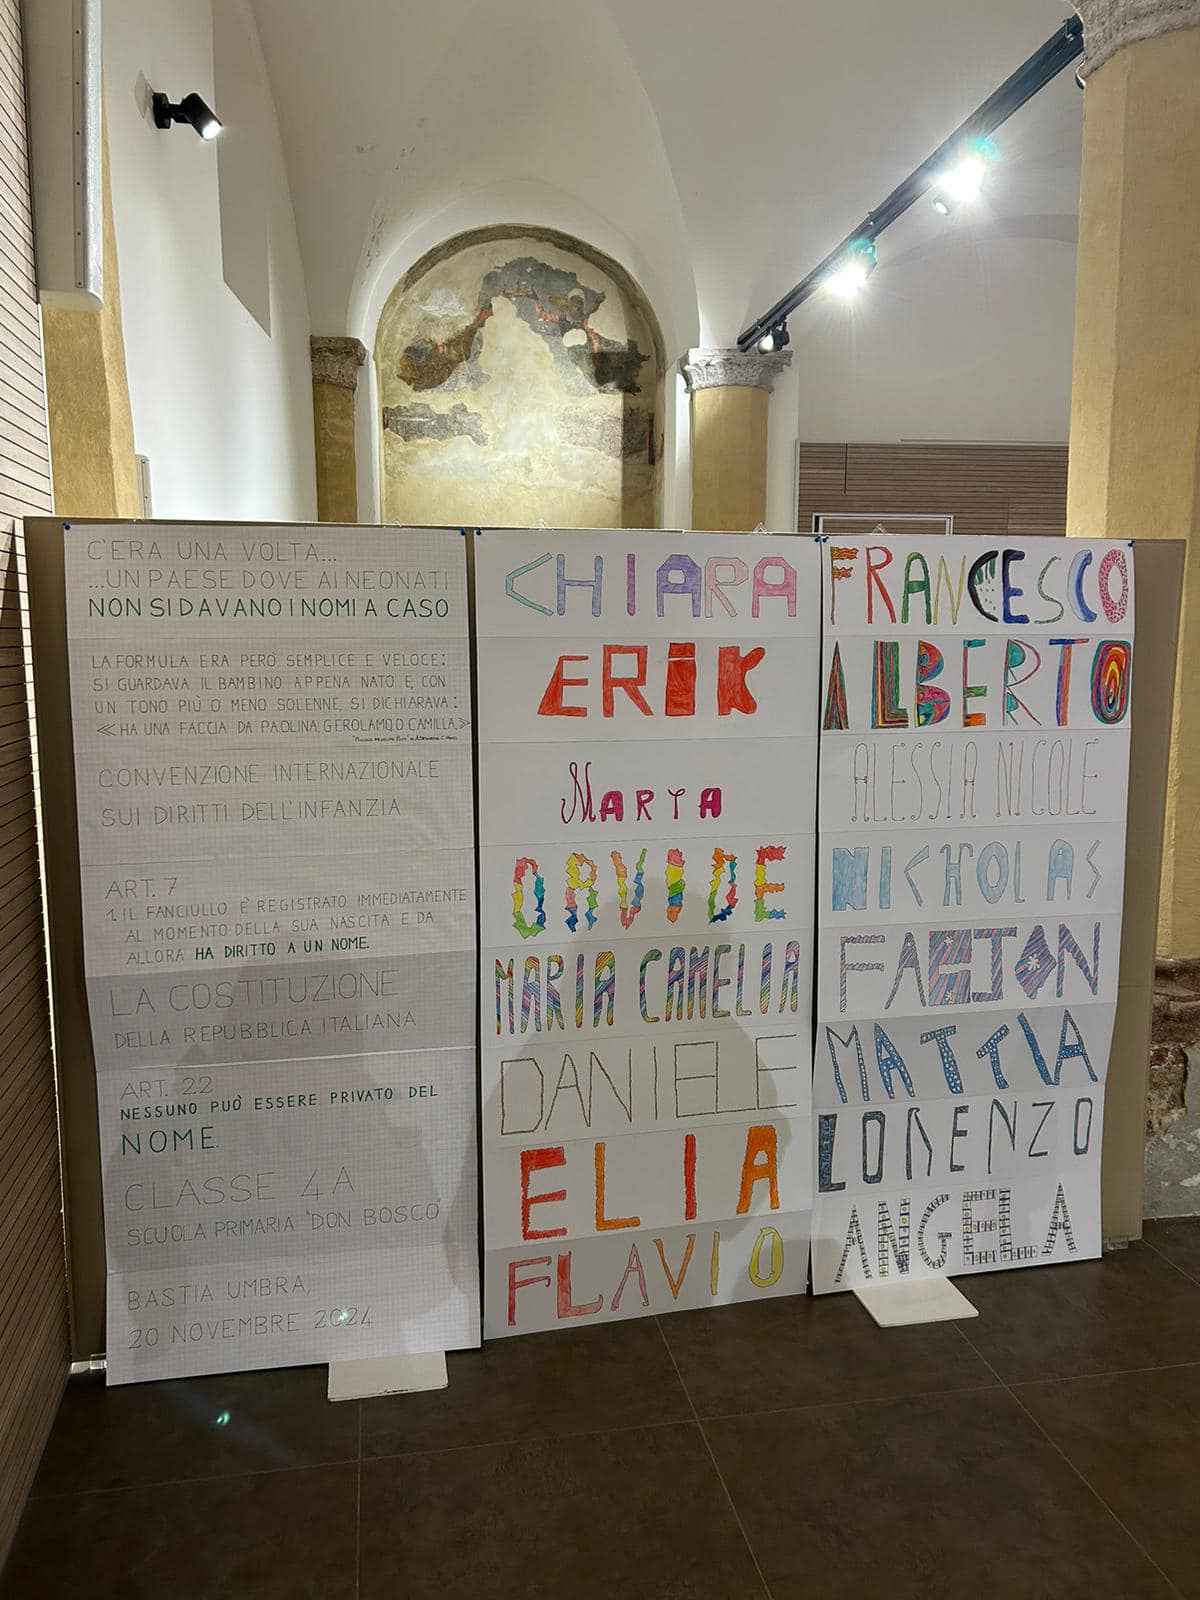 C'ERA UNA VOLTA...
...UN PAESE DOVE AI NEONATI
NON SI DAVANO I NOMI A CASO
LA FORMULA ERA PERÒ SEMPLICE E VELOCE:
SI GUARDAVA IL BAMBINO APPENA NATO E, CON
UN TONO PIÙ O MENO SOLENNE, SI DICHIARAVA:
≪HA UNA FACCIA DA PAOLINA, GEROLAMO O CAMILLA.≫
CONVENZIONE INTERNAZIONALE
SUI DIRITTI DELL'INFANZIA
ART. 7
1. IL FANCIULLO È REGISTRATO IMMEDIATAMENTE
AL MOMENTO DELLA SUA NASCITA E DA
ALLORA HA DIRITTO A UN NOME.
LA COSTITUZIONE
DELLA REPUBBLICA ITALIANA
ART. 22
NESSUNO PUÒ ESSERE PRIVATO DEL
NOME.
CLASSE 4A
SCUOLA PRIMARIA "DON BOSCO"
BASTIA UMBRA,
20 NOVEMBRE 2024
CHIARA
ERIK
MARTA
DAVIDE
MARIA CAMELIA
DANIELE
ELIA
FLAVIO
FRANCESCO
ALBERTO
ALESSIA NICOLE
NICHOLAS
FABJON
MATTIA
LORENZO
ANGELA